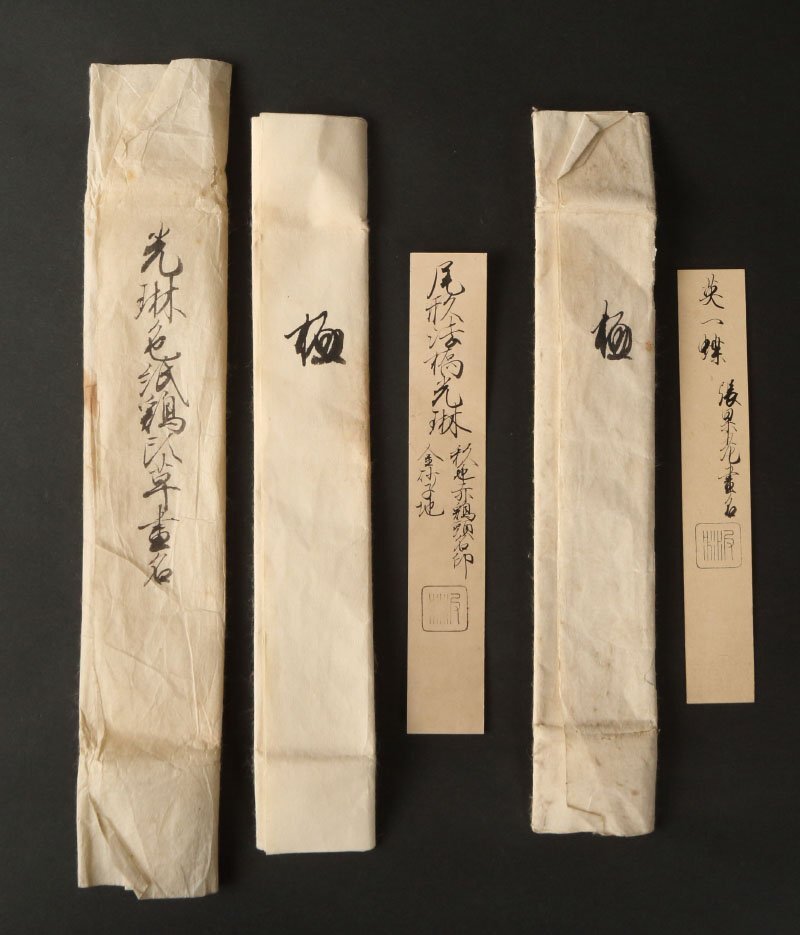 光琳色紙鶏頭草畫名
極
尾形法橋光琳
金砂子地
極
英一蝶
張果老畫名